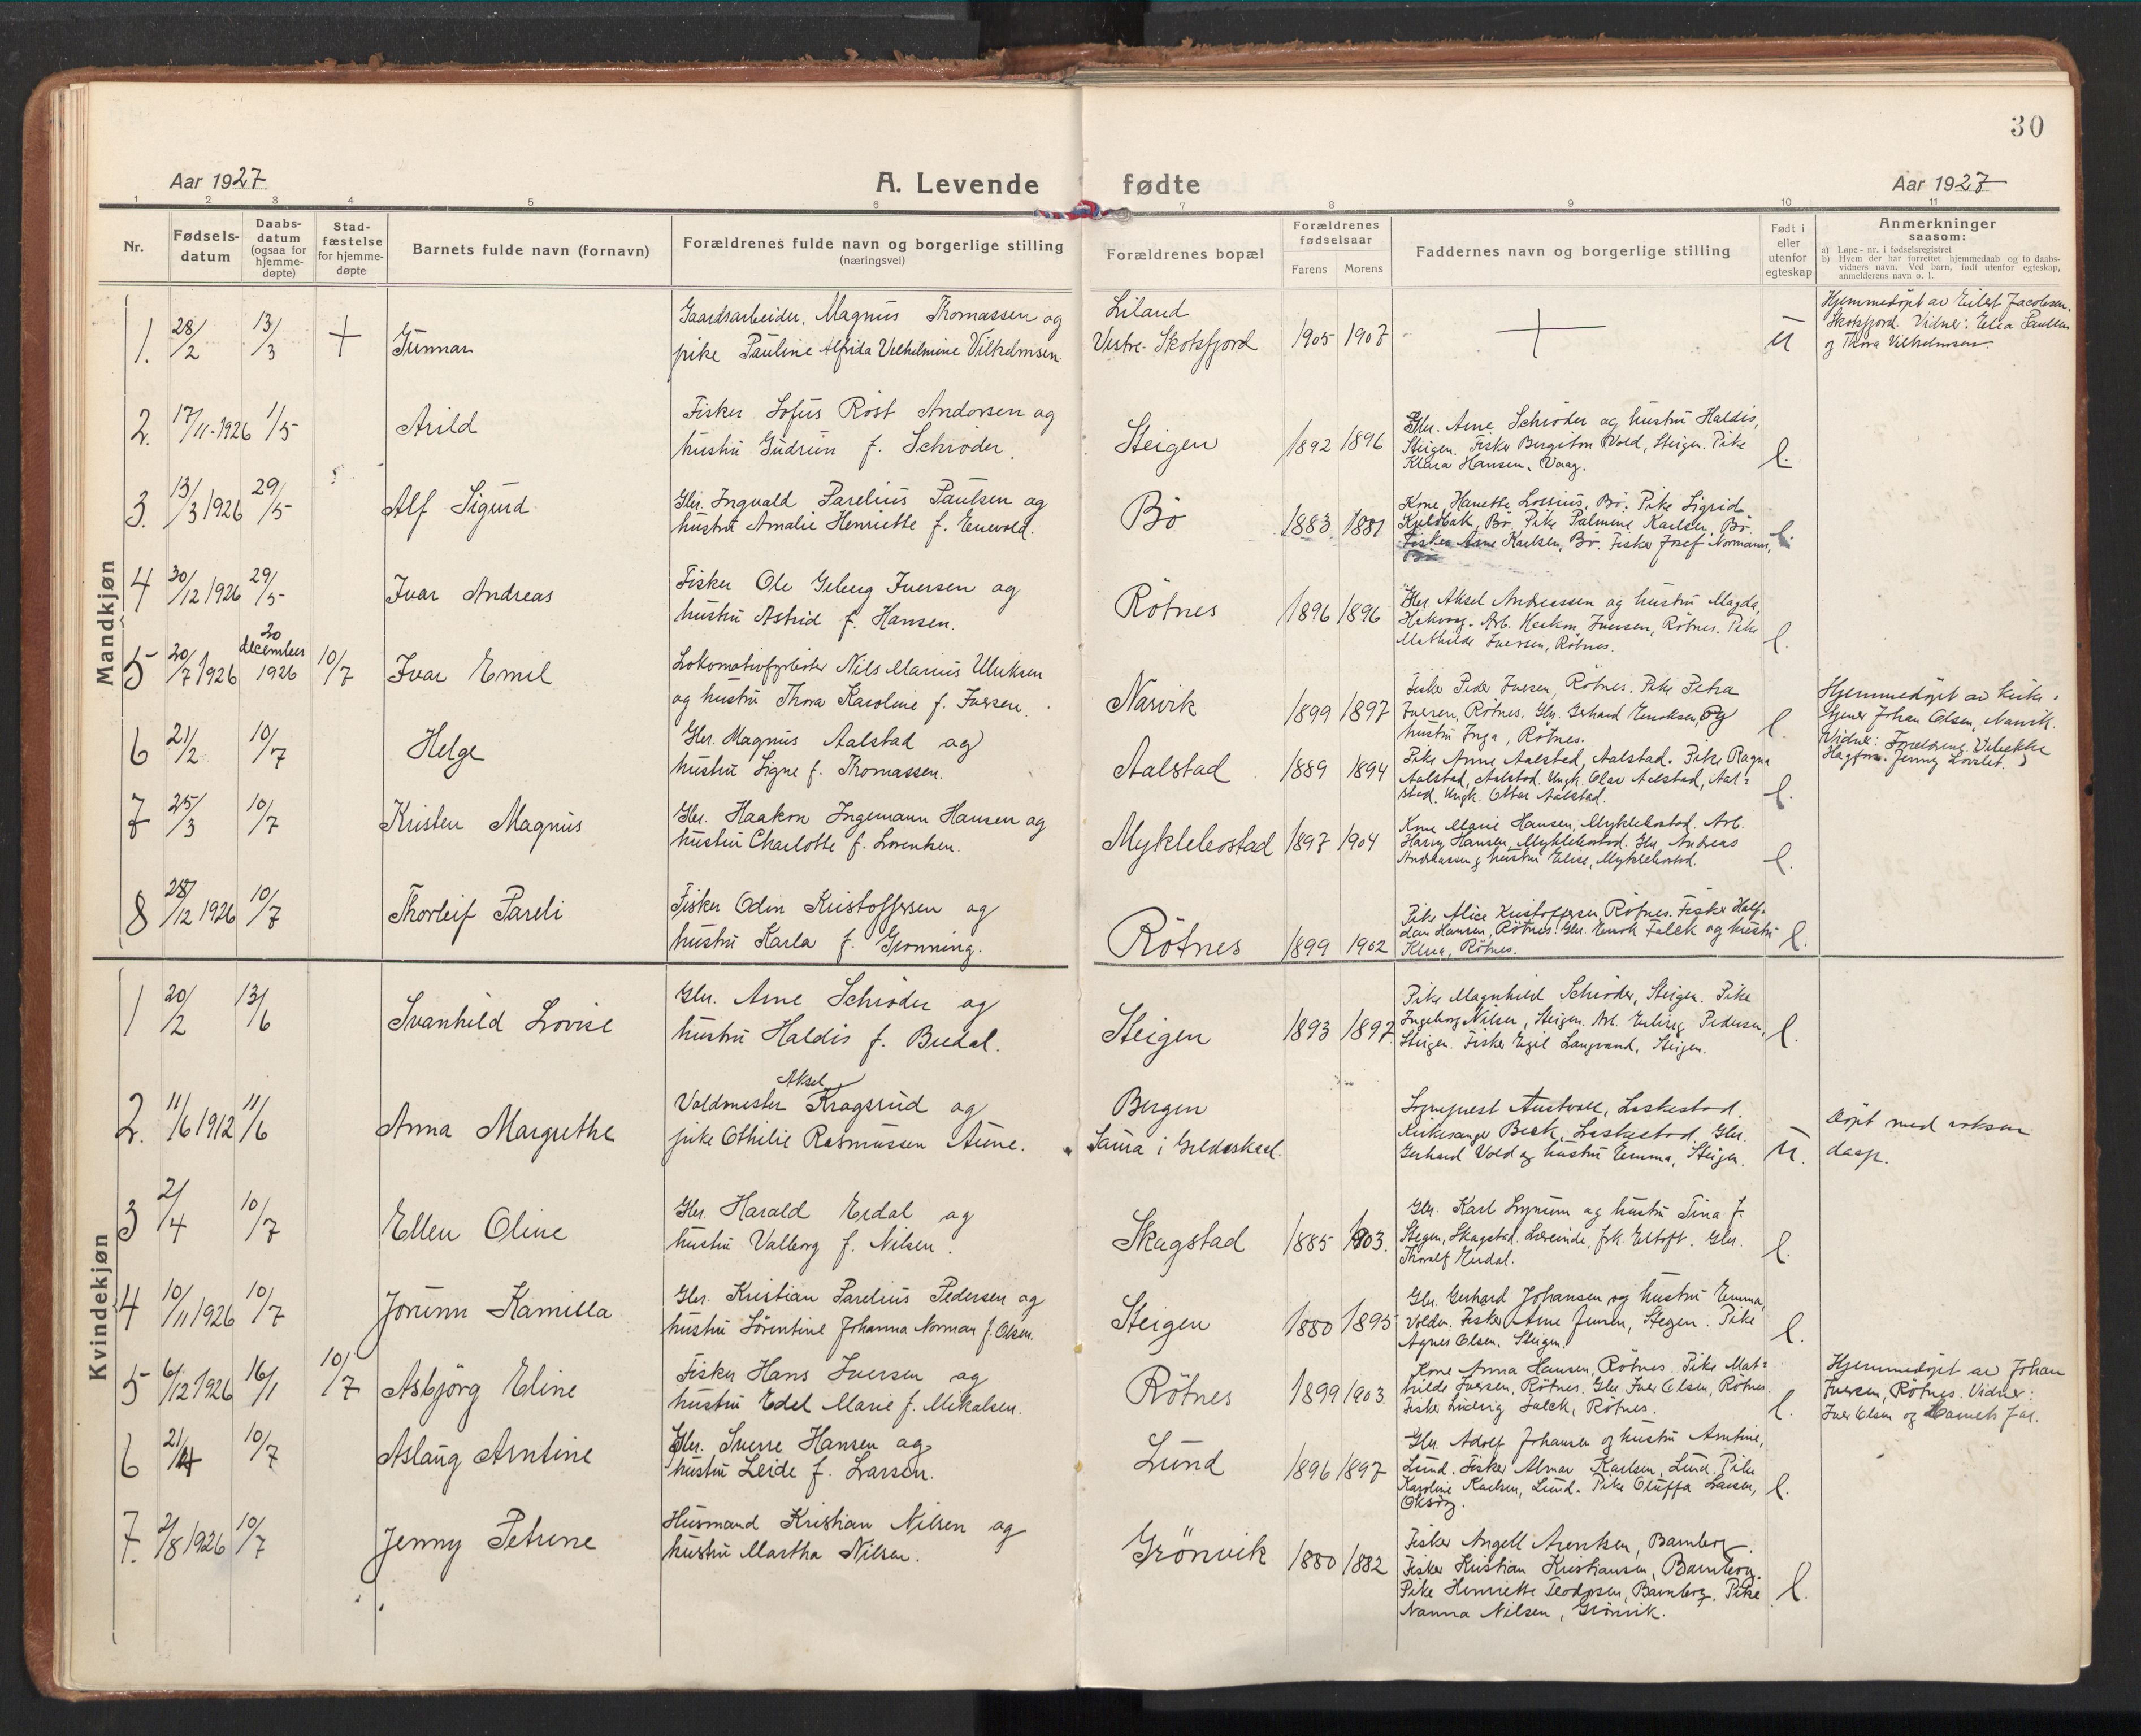 30
Aar 1927
A. Levende fødte
Aar 1927
1 2 3 4 5 6 7 8 9 10 11
Nr.
Fødsels-
datum
Daabs-
datum
(ogsaa for
hjemme-
døpte)
Stad-
fæstelse
for hjemme-
døpte
Barnets fulde navn (fornavn)
Forældrenes fulde navn og borgerlige stilling
(næringsvei)
Forældrenes bopæl
Forældrenes
fødselsaar
Farens Morens
Faddernes navn og borgerlige stilling
Født i
eller
utenfor
egteskap
Anmerkninger
saasom:
a) Løpe-nr. i fødselsregistret
b) Hvem der har forrettet hjemmedaab og to daabs-
vidners navn. Ved barn, født utenfor egteskap,
anmelderens navn o. l.
Mandkjøn
1. 28/2 13/3 + Gunnar
Gaardsarbeider, Magnus Thomassen og
pike Pauline Alfrida Vilhelmine Vilhelmsen
Liland
Vestre-Skotsfjord
1905 1907
u
Hjemmedöpt av Eilert Jacobsen.
Skotsfjord. Vidner: Elea Paulsen
og Thora Vilhelmsen.
2. 17/11-1926 1/5 Arild
Fisker Sofus Röst Andorsen og
hustru Gudrun f. Schröder.
Steigen
1892 1896
Gbr. Arne Schröder og hustru Haldis,
Steigen. Fisker Bergiton Vold, Steigen. Pike
Klara Hansen, Vaag.
l.
3. 13/3 1926 29/5 Alf Sigurd
Gbr. Ingvald Parelius Paulsen og
hustru Amalie Henriette f. Enevold.
Bö
1883 1881
Kone Hanette Lossius, Bö. Pike Sigrid
Kjeldbak, Bö. Pike Palmine Karlsen, Bö.
Fisker Arne Karlsen, Bö. Fisker Josef Normann,
Bö
l.
4 30/12 1926 29/5 Ivar Andreas
Fisker Ole Geberg Iversen og
hustru Astrid f. Hansen.
Rötnes
1896 1896
Gbr. Aksel Andreassen og hustru Magda,
Hakvaag. Arb. Haakon Iversen, Rötnes. Pike
Mathilde Iversen, Rötnes.
l.
5 20/7 1926 20 december 1926 10/7 Ivar Emil
Lokomotivfyrböter Nils Marius Ulriksen
og hustru Thora Karoline f. Iversen.
Narvik
1899 1897
Fisker Peder Iversen, Rötnes. Pike Petra
Iversen, Rötnes. Gbr. Gerhard Enoksen, og
hustru Inga, Rötnes.
l.
Hjemmedöpt av kirke-
tjener Johan Olsen, Narvik.
Vidner: Vibekke
Jenny
6 21/2 10/7 Helge
Gbr. Magnus Aalstad og
hustru Signe f. Thomassen.
Aalstad
1889 1894
Pike Anne Aalstad, Aalstad. Pike Ragna
Aalstad, Aalstad. Ungk. Olav Aalstad, Aal-
stad. Ungk. Ottar Aalstad.
l.
7 25/3 10/7 Kristen Magnus
Gbr. Haakon Ingemann Hansen og
hustru Charlotte f. Lorentsen.
Myklebostad
1897 1904
Kone Marie Hansen, Myklebostad. Arb.
Harry Hansen, Myklebostad. Gbr. Andreas
Andreassen & hustru Elise, Myklebostad.
l.
8 28/12 1926 10/7 Thorleif Pareli
Fisker Odin Kristoffersen og
hustru Karla f. Grönning.
Rötnes
1899 1902
Pike Alice Kristoffersen, Rötnes. Fisker Half-
dan Hansen, Rötnes. Gbr. Enok Falck og hustru
Klara, Rötnes.
l.
Kvindekjøn
1 20/2 13/6 Svanhild Lovise
Gbr. Arne Schröder og
hustru Haldis f. Bredal.
Steigen
1893 1897
Pike Magnhild Schröder, Steigen. Pike
Ingeborg Nilsen, Steigen. Arb. Pedersen,
Steigen. Fisker Egil Langsand, Steigen.
l.
2. 11/6 1912 11/6 Anna Margrethe
Aksel
Voldmester Kragsrud og
pike Othilie Rasmussen Aune.
Bergen
Saura i Gildeskaal.
Sogneprest Austvoll, Leskestad.
Kirkesanger Beck, Leskestad. Gbr.
Gerhard Vold og hustru Emma, Steigen.
u.
Döpt med voksen
daap.
3 2/4 10/7 Ellen Oline
Gbr. Harald Erdal og
hustru Valborg f. Nilsen.
Skagstad
1885 1903.
Gbr. Karl Lynum og hustru Tina f.
Stegen, Skagstad. Lærerinde, frk. Eltoft. Gbr.
Thoralf Erdal.
l.
4 10/11 1926 10/7 Jorunn Kamilla
Gbr. Kristian Parelius Pedersen og
hustru Sörentine Johanna Norman f. Olsen.
Steigen
1880 1895
Gbr. Gerhard Johansen og hustru Emma,
Volden. Fisker Arne Jensen, Steigen. Pike
Agnes Olsen, Steigen.
l.
5 6/12 1926 16/1 10/7 Asbjörg Eline
Fisker Hans Iversen og
hustru Edel Marie f. Mikalsen.
Rötnes
1899 1903.
Kone Anna Hansen, Rötnes. Pike Mat-
hilde Iversen, Rötnes. Gbr. Iver Olsen, Rötnes.
Fisker Ludvig Falck, Rötnes.
l.
Hjemmedöpt av Johan
Iversen, Rötnes. Vidner:
Iver Olsen og Barnets far.
6 21/4 10/7 Aslaug Arntine
Gbr. Sverre Hansen og
hustru Leide f. Larsen.
Lund
1896 1897
Gbr. Adolf Johansen og hustru Arntine,
Lund. Fisker Almar Karlsen, Lund. Pike
Karoline Karlsen, Lund. Pike Oluffa Larsen,
l.
7. 2/8 1926 10/7 Jenny Petrine
Husmand Kristian Nilsen og
hustru Martha Nilsen.
Grönvik
1880 1882
Fisker Angell Arentsen, Barnberg.
Fisker Kristian Kristiansen, Barnberg.
Pike Henriette Teodorsen, Barnberg. Pike
Nanna Nilsen, Grönvik.
l.